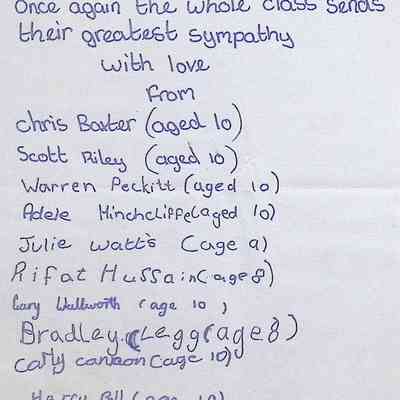 Once again the whole class sends
their greatest sympathy
with love
From
Chris Baxter (aged 10)
Scott Riley (aged 10)
Warren Peckitt (aged 10)
Adele Hinchcliffe (aged 10)
Julie Watts (age 9)
Rifat Hussain (age 8)
Gary Wallworth (age 10)
Bradley Legg (age 8)
Carly cannon (age 10)
Harry (age 10)